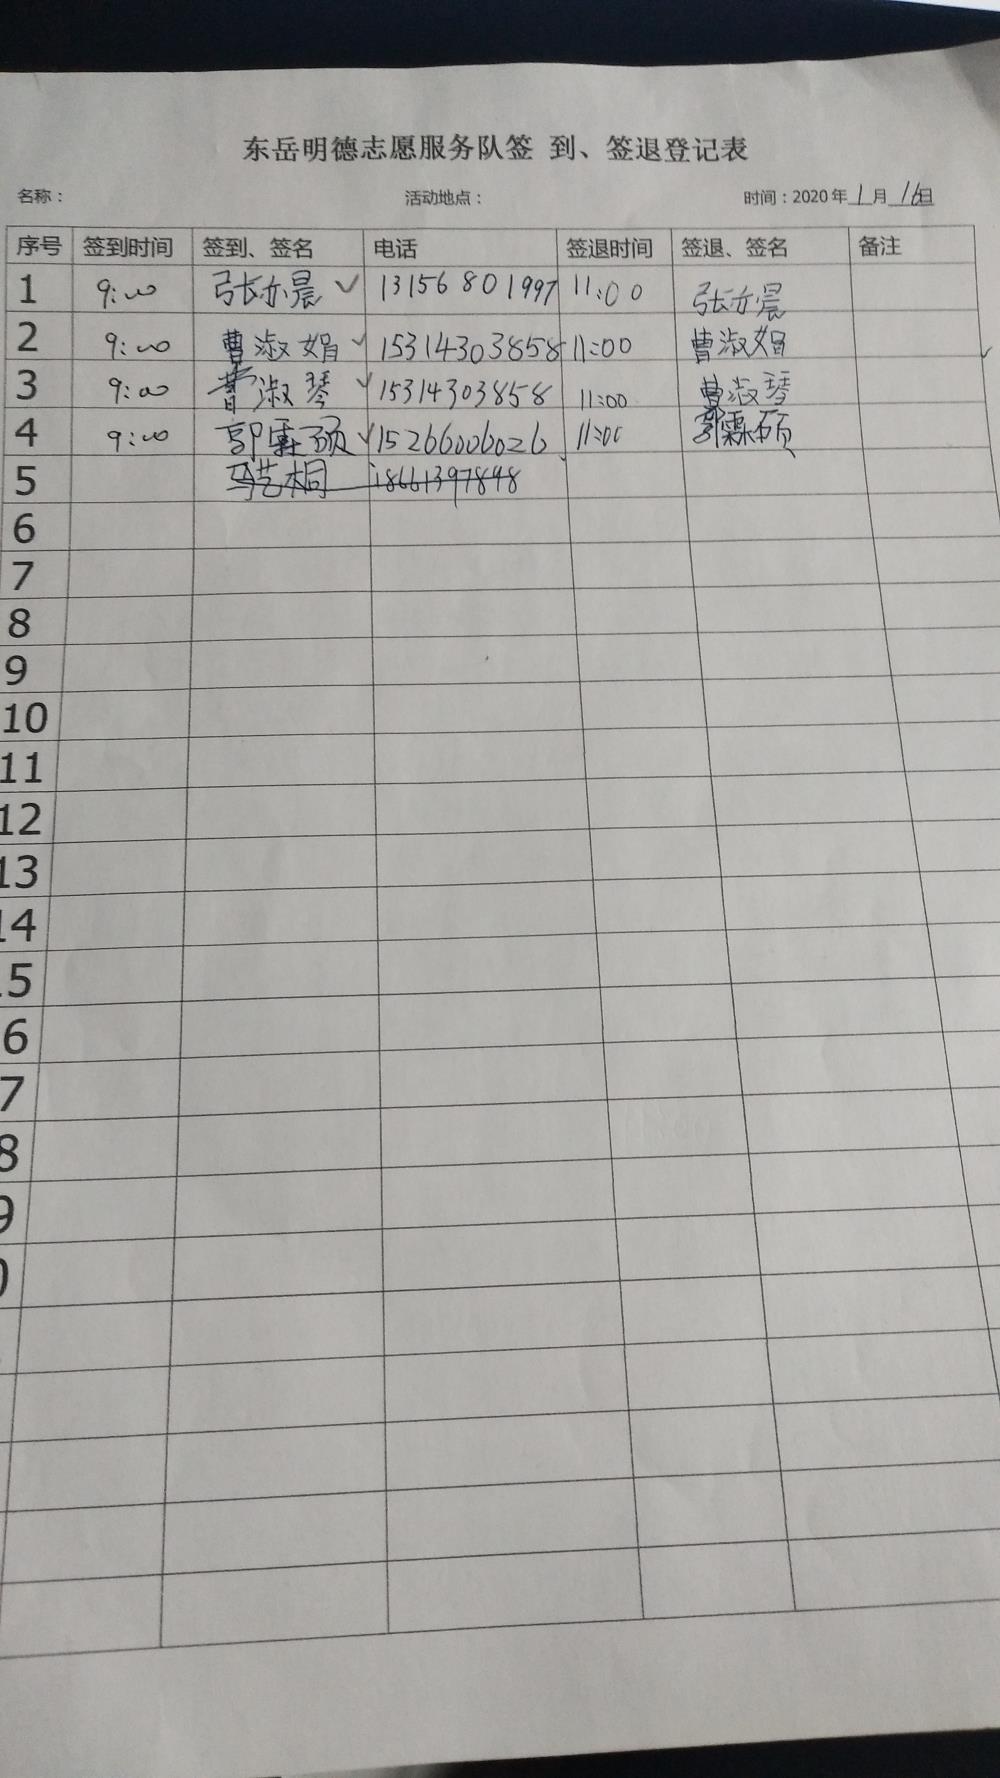 东岳明德志愿服务队签 到、签退登记表
名称： 活动地点： 时间：2020年1月16日
序号 签到时间 签到、签名 电话 签退时间 签退、签名 备注
1 9:00 张亦晨 ✓ 13156801997 11:00 张亦晨
2 9:00 曹淑娟 ✓ 15314303858 11:00 曹淑娟
3 9:00 曹淑琴 ✓ 15314303858 11:00 曹淑琴
4 9:00 郭霖硕 ✓ 15266006026 11:00 郭霖硕
5 马艺桐 18661397898
6
7
8
9
10
11
12
13
14
15
6
7
8
9